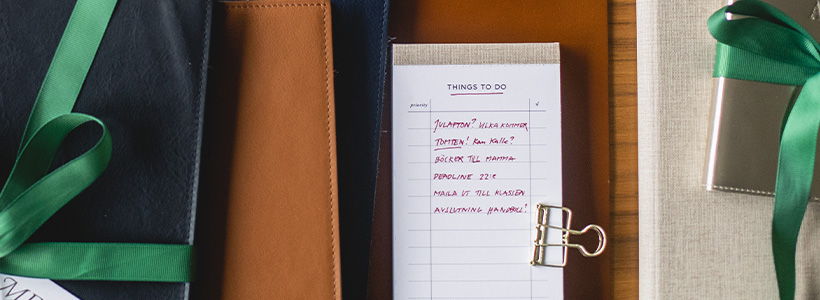 THINGS TO DO
priority
JULAFTON? VILKA KOMMER
TOMTEN! Kan Kalle?
BÖCKER TILL MAMMA
DEADLINE 22:e
MAILA UT TILL KLASSEN
AVSLUTNING HANDBOLL!